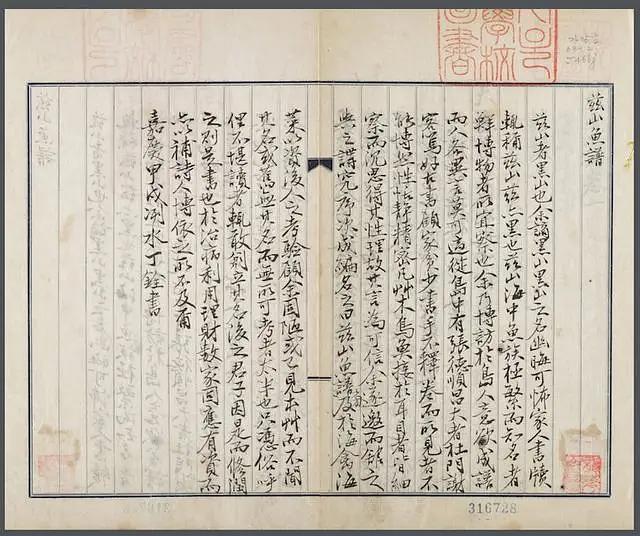 玆山魚譜
玆山者黑山也余謫黑山黑山之名幽晦可怖家人書牘
輒稱玆山玆亦黑也玆山海中魚族極繁而知名者
鮮博物者所宜察也余乃博訪於島人意欲成譜
而人各異言莫可適從島中有張德順昌大者杜門謝
客篤好古書顧家貧少書手不釋卷而所見者不
能博然性恬靜精密凡草木鳥魚接於耳目者皆細
察而沈思得其性理故其言爲可信余遂邀而館之
與之講究序次成編名之曰玆山魚譜旁及於海禽海
菜以資後人之考驗顧余固陋或已見本草而不聞
其名或舊無其名而無所可考者太半也只憑俗呼
俚不堪讀者輒敢創立其名後之君子因是而修潤
之則是書也於治病利用理財數家固應有資而
亦以補詩人博依之所不及爾
嘉慶甲戌洌水丁銓書
316728